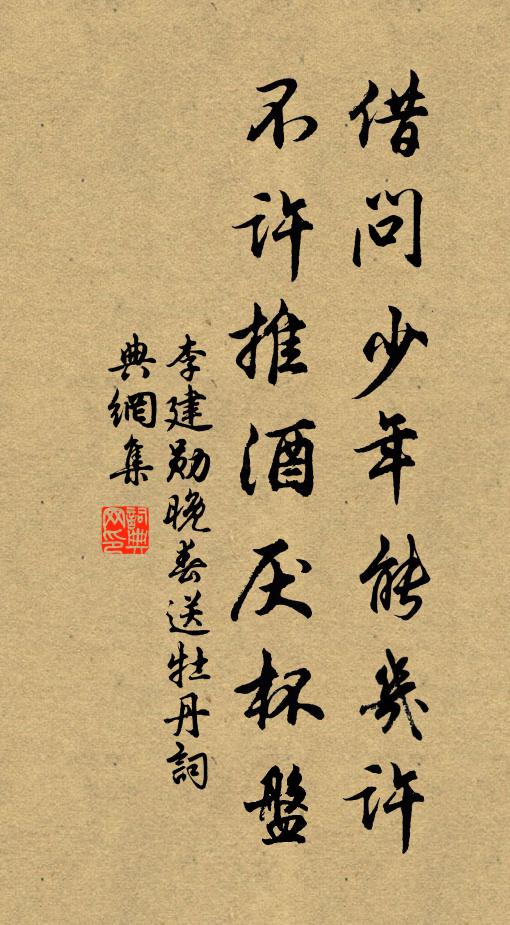 借問少年能幾許
不許推酒厌杯盤
李建勋晚春送牡丹詞
典網集
詞典
网印